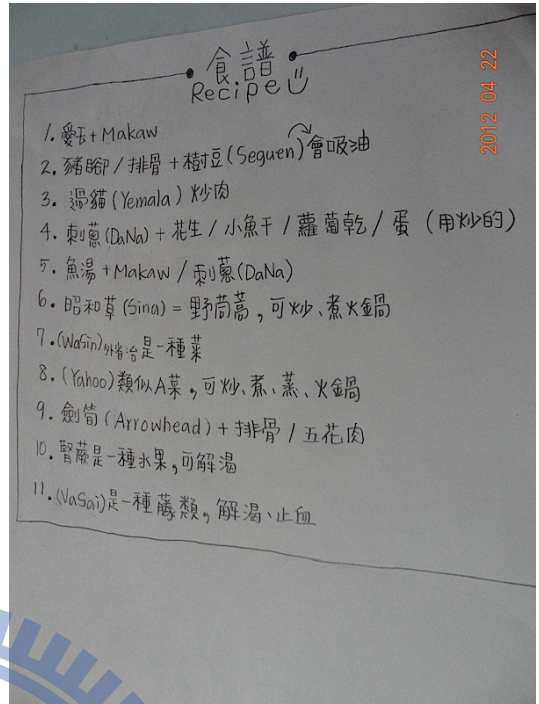 食譜
Recipe
2012 04 22
1. 愛玉 + Makaw
2. 豬腳 / 排骨 + 樹豆 (Seguen) 會吸油
3. 過貓 (Yemala) 炒肉
4. 刺蔥 (DaNa) + 花生 / 小魚干 / 蘿蔔乾 / 蛋 (用炒的)
5. 魚湯 + Makaw / 刺蔥 (DaNa)
6. 昭和草 (Sina) = 野茼蒿，可炒、煮火鍋
7. (WaSin) 外省冶是一種菜
8. (Yahoo) 類似A菜，可炒、煮、蒸、火鍋
9. 劍筍 (Arrowhead) + 排骨 / 五花肉
10. 腎蕨是一種水果，可解渴
11. (VaSai) 是一種藤類，解渴、止血